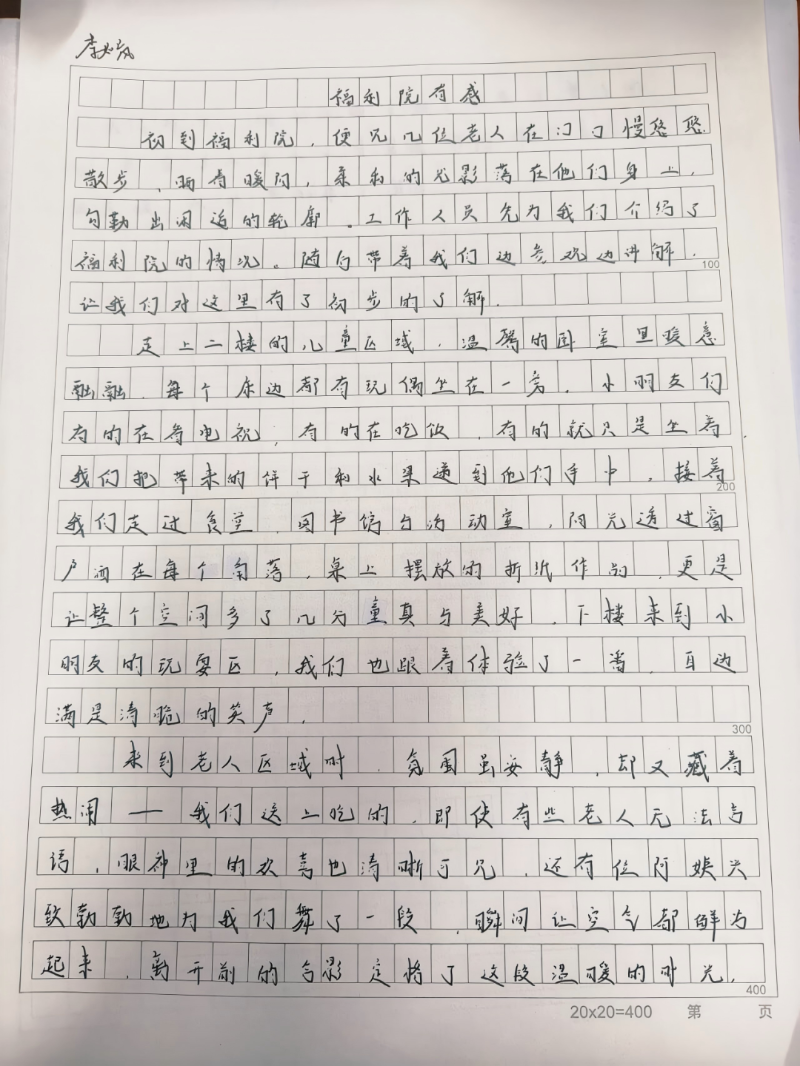 福利院有感
初到福利院，便见几位老人在门口慢悠悠
散步，晒着暖阳，柔和的光影落在他们身上，
勾勒出闲适的轮廓。工作人员先为我们介绍了
福利院的情况。随后带着我们边参观边讲解，
100
让我们对这里有了初步的了解.
走上二楼的儿童区域，温馨的卧室里暖意
融融，每个床边都有玩偶坐在一旁，小朋友们
有的在看电视，有的在吃饭，有的就只是坐着
我们把带来的饼干和水果递到他们手中，接着
200
我们走过食堂，图书馆与活动室，阳光透过窗
户洒在每个角落，桌上摆放的折纸作品，更是
让整个空间多了几分童真与美好，下楼来到小
朋友的玩耍区，我们也跟着体验了一番，耳边
满是清脆的笑声，
300
来到老人区域时，氛围虽安静，却又藏着
热闹——我们送上吃的，即使有些老人无法言
语，眼神里的欢喜也清晰可见，还有位阿娭兴
致勃勃地为我们舞了一段，瞬间让空气都鲜为
起来，离开前的合影定格了这段温暖的时光，
400
20x20=400 第 页